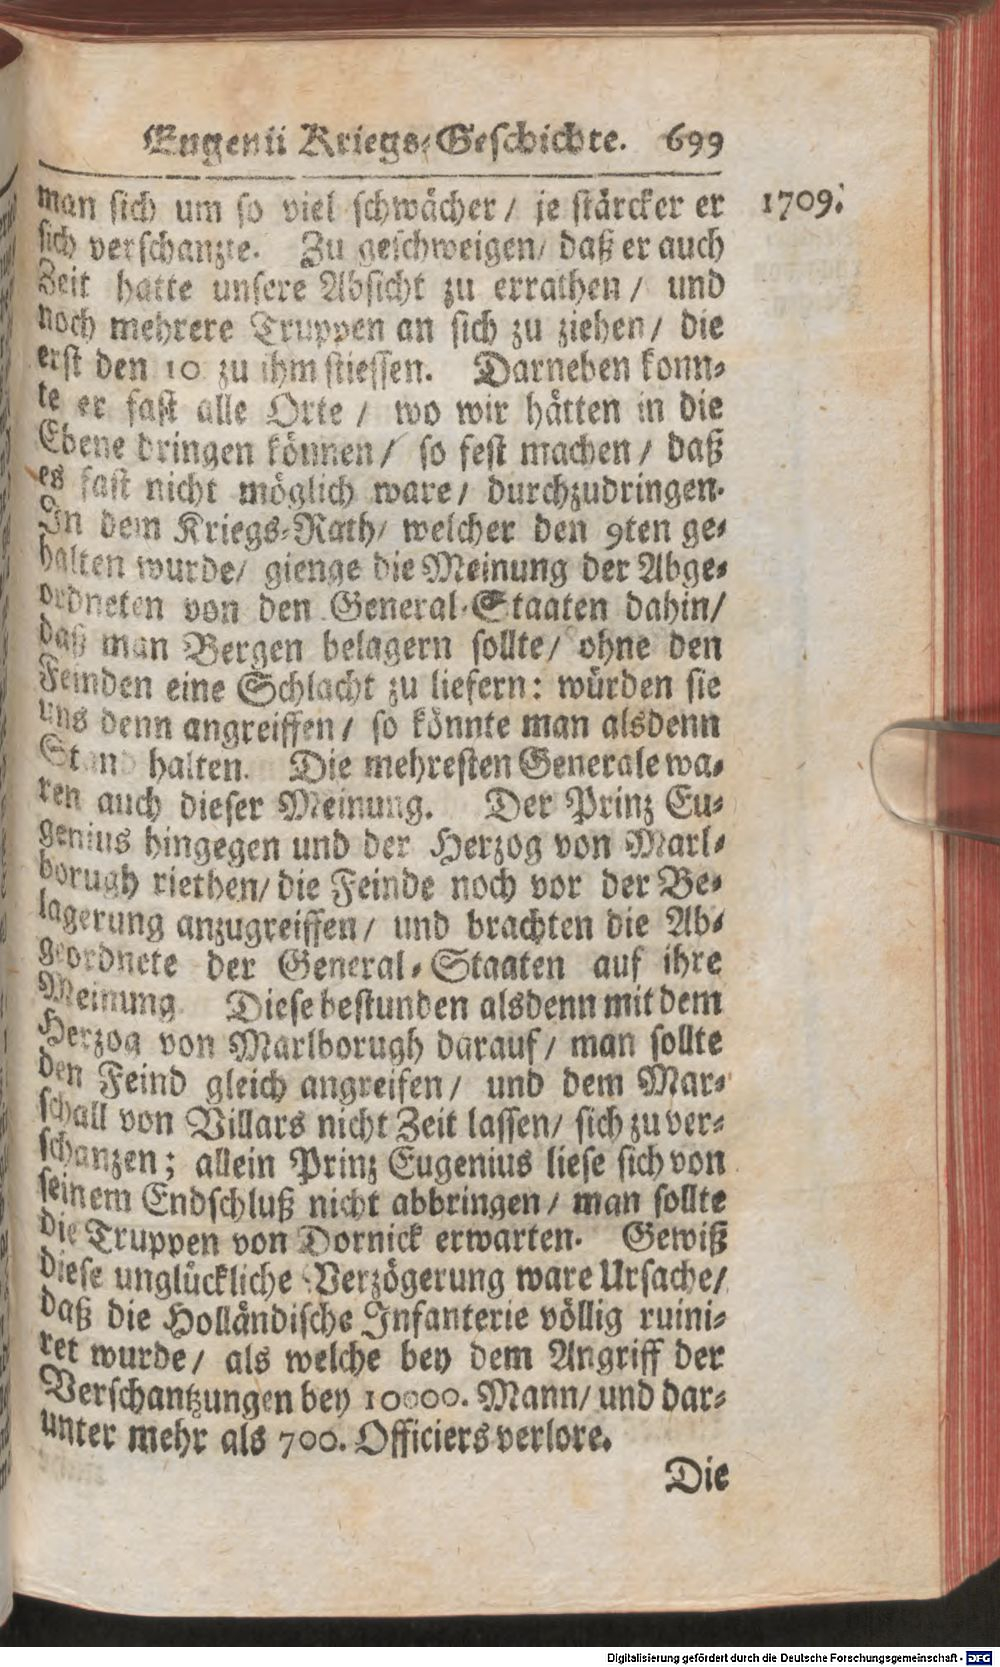 Eugenii Kriegs-Geschichte. 699
1709.
man sich um so viel schwächer / je stärcker er
sich verschanzte. Zu geschweigen / daß er auch
Zeit hatte unsere Absicht zu errathen / und
noch mehrere Truppen an sich zu ziehen / die
erst den 10 zu ihm stiessen. Darneben konn-
te er fast alle Orte / wo wir hätten in die
Ebene dringen können / so fest machen / daß
es fast nicht möglich ware / durchzudringen.
In dem Kriegs-Rath / welcher den 9ten ge-
halten wurde / gienge die Meinung der Abge-
ordneten von den General-Staaten dahin /
daß man Bergen belagern sollte / ohne den
Feinden eine Schlacht zu liefern: würden sie
uns denn angreiffen / so könnte man alsdenn
Stand halten. Die mehresten Generale wa-
ren auch dieser Meinung. Der Prinz Eu-
genius hingegen und der Herzog von Marl-
borugh riethen / die Feinde noch vor der Be-
lagerung anzugreiffen / und brachten die Ab-
geordnete der General-Staaten auf ihre
Meinung. Diese bestunden alsdenn mit dem
Herzog von Marlborugh darauf / man sollte
den Feind gleich angreifen / und dem Mar-
schall von Villars nicht Zeit lassen / sich zu ver-
schanzen; allein Prinz Eugenius liese sich von
seinem Endschluß nicht abbringen / man sollte
die Truppen von Dornick erwarten. Gewiß
diese unglückliche Verzögerung ware Ursache /
daß die Holländische Infanterie völlig ruini-
ret wurde / als welche bey dem Angriff der
Verschantzungen bey 10000. Mann / und dar-
unter mehr als 700. Officiers verlore.
Die
Digitalisierung gefördert durch die Deutsche Forschungsgemeinschaft - DFG